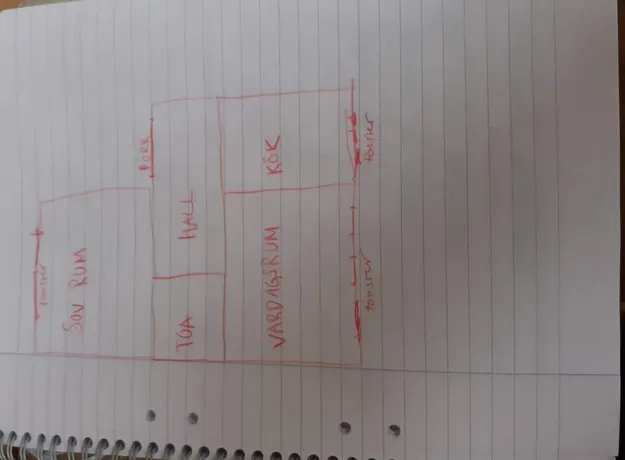 fönster
SOV RUM
DÖRR
TOA
HALL
VARDAGSRUM
KÖK
fönster
fönster